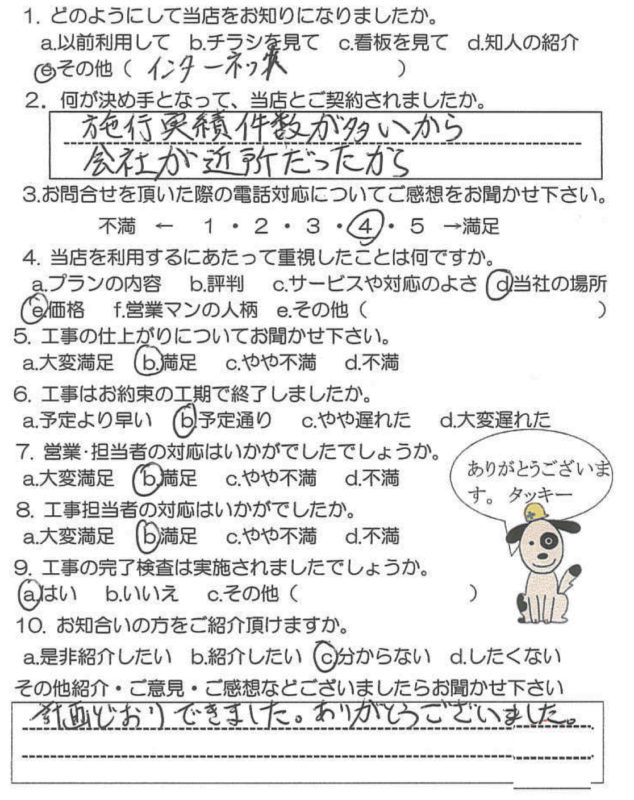 1. どのようにして当店をお知りになりましたか。
a.以前利用して b.チラシを見て c.看板を見て d.知人の紹介
e.その他（ インターネット ）
2. 何が決め手となって、当店とご契約されましたか。
施行実績件数が多いから
会社が近所だったから
3.お問合せを頂いた際の電話対応についてご感想をお聞かせ下さい。
不満 ← 1 ・ 2 ・ 3 ・ 4 ・ 5 →満足
4. 当店を利用するにあたって重視したことは何ですか。
a.プランの内容 b.評判 c.サービスや対応のよさ d.当社の場所
e.価格 f.営業マンの人柄 e.その他（ ）
5. 工事の仕上がりについてお聞かせ下さい。
a.大変満足 b.満足 c.やや不満 d.不満
6. 工事はお約束の工期で終了しましたか。
a.予定より早い b.予定通り c.やや遅れた d.大変遅れた
7. 営業・担当者の対応はいかがでしたでしょうか。
a.大変満足 b.満足 c.やや不満 d.不満
ありがとうございま
す。 タッキー
8. 工事担当者の対応はいかがでしたか。
a.大変満足 b.満足 c.やや不満 d.不満
9. 工事の完了検査は実施されましたでしょうか。
a.はい b.いいえ c.その他（ ）
10. お知合いの方をご紹介頂けますか。
a.是非紹介したい b.紹介したい c.分からない d.したくない
その他紹介・ご意見・ご感想などございましたらお聞かせ下さい
計画どおりできました。ありがとうございました。